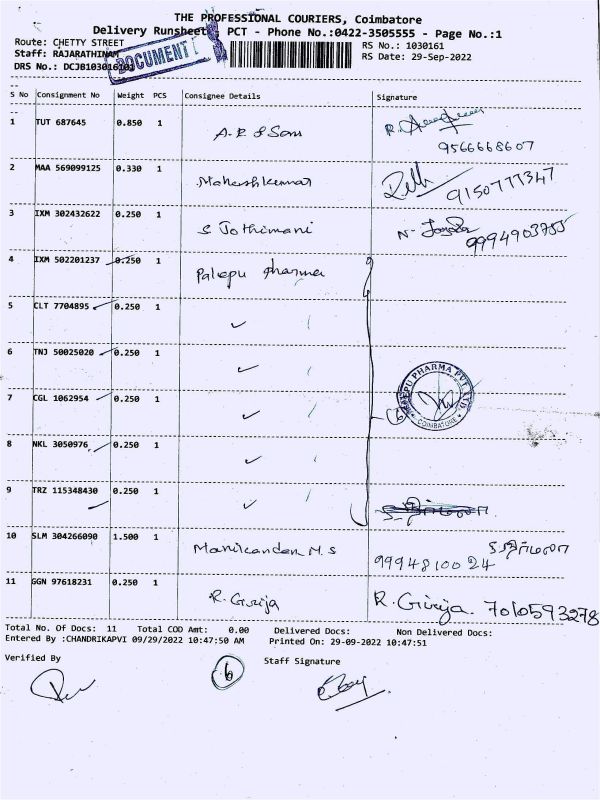 THE PROFESSIONAL COURIERS, Coimbatore
Delivery Runsheet, PCT - Phone No.:0422-3505555 - Page No.:1
Route: CHETTY STREET RS No.: 1030161
Staff: RAJARATHINAM RS Date: 29-Sep-2022
DRS No.: DCJB103016101
DOCUMENT
S No Consignment No Weight PCS Consignee Details Signature
1 TUT 687645 0.850 1 A.R & Sons R.
9566668607
2 MAA 569099125 0.330 1 Maheshkumar 9150777347
3 IXM 302432622 0.250 1 S Jothimani N-
9994903755
4 IXM 502201237 0.250 1 Palepu pharma
5 CLT 7704895 0.250 1
6 TNJ 50025020 0.250 1
7 CGL 1062954 0.250 1 PALEPU PHARMA PVT LTD. COIMBATORE
8 NKL 3050976 0.250 1
9 TRZ 115348430 0.250 1
10 SLM 304266090 1.500 1 Manikandan M.S
9994810024
11 GGN 97618231 0.250 1 R. Girija R. Girija. 7010593278
Total No. Of Docs: 11 Total COD Amt: 0.00 Delivered Docs: Non Delivered Docs:
Entered By :CHANDRIKAPVI 09/29/2022 10:47:50 AM Printed On: 29-09-2022 10:47:51
Verified By Staff Signature
6